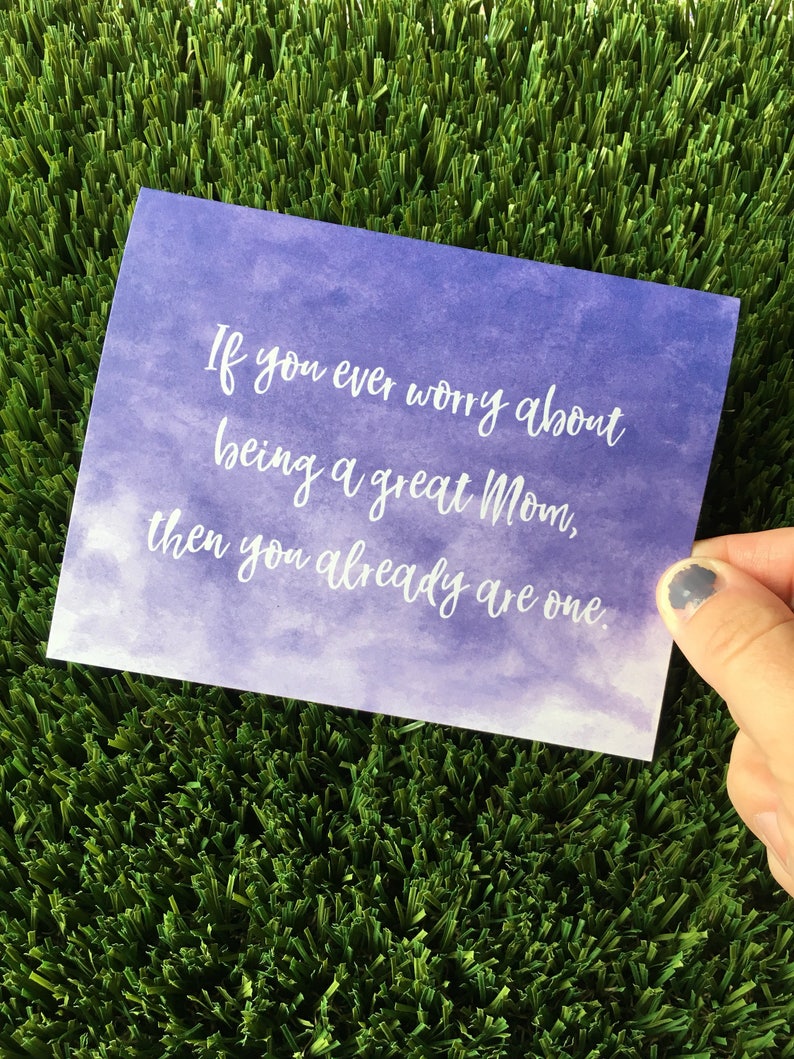 If you ever worry about
being a great Mom,
then you already are one.